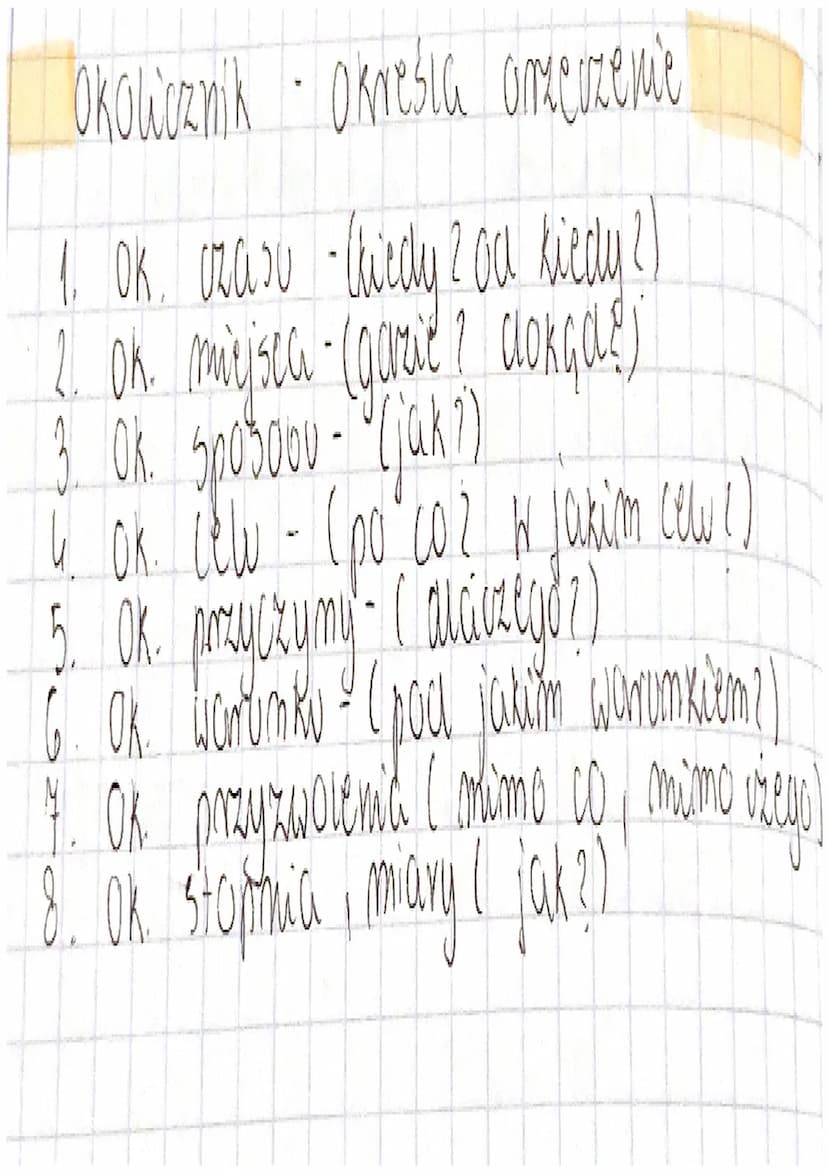 Okolicznik - określa orzeczenie
1. Ok. czasu - (kiedy? od kiedy?)
2. Ok. miejsca - (gdzie? dokąd?)
3. Ok. sposobu - (jak?)
4. Ok. celu - (po co? w jakim celu?)
5. Ok. przyczyny - (dlaczego?)
6. Ok. warunku - (pod jakim warunkiem?)
7. Ok. przyzwolenia (mimo co, mimo czego)
8. Ok. stopnia, miary (jak?)